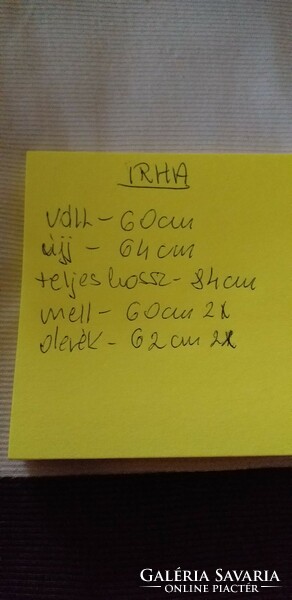 IRHA
váll - 60cm
ujj - 64cm
teljes hossz - 84cm
mell - 60cm 2x
derék - 62cm 2x
GALÉRIA SAVARIA
ONLINE PIACTÉR